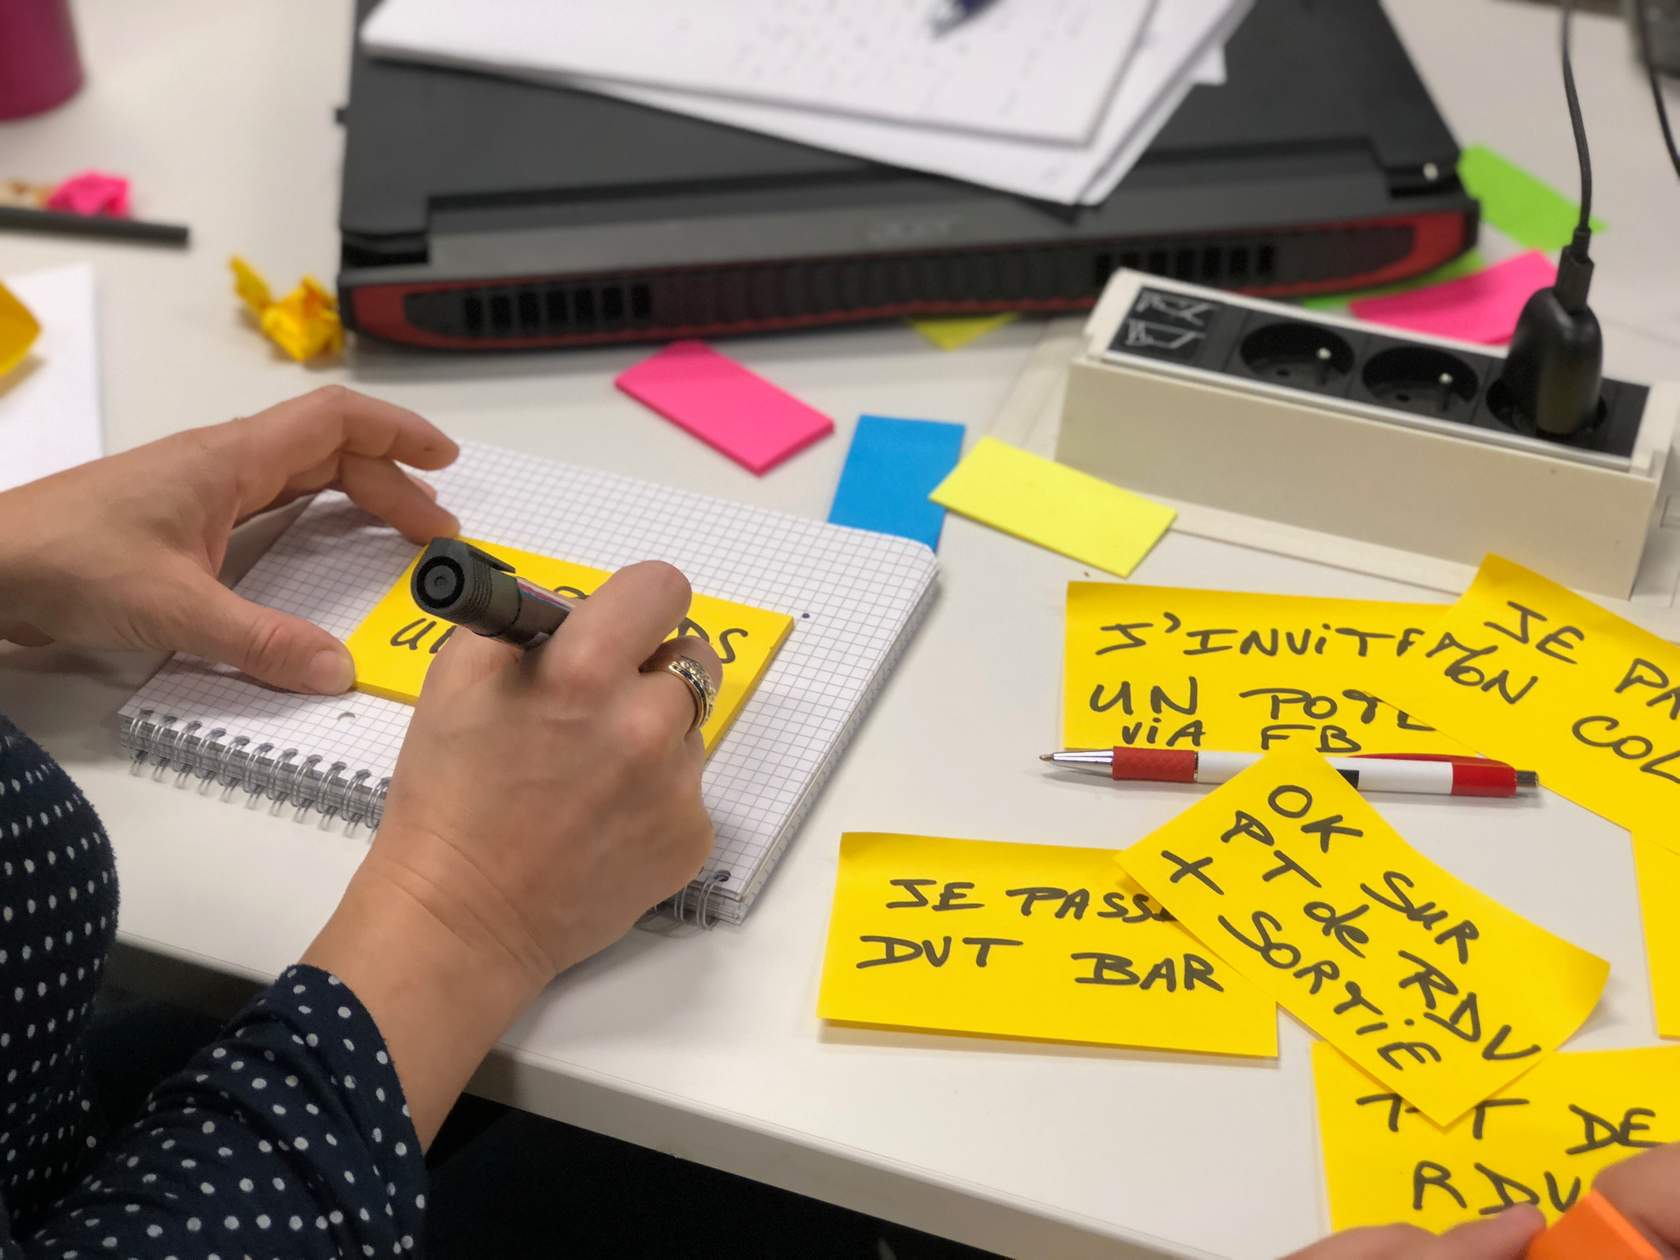 acer
UN
DS
J'INVITE MON
UN POTE
VIA FB
JE PA
COL
JE PASSE
DVT BAR
OK SUR
PT de RDV
+ SORTIE
DE
RDV